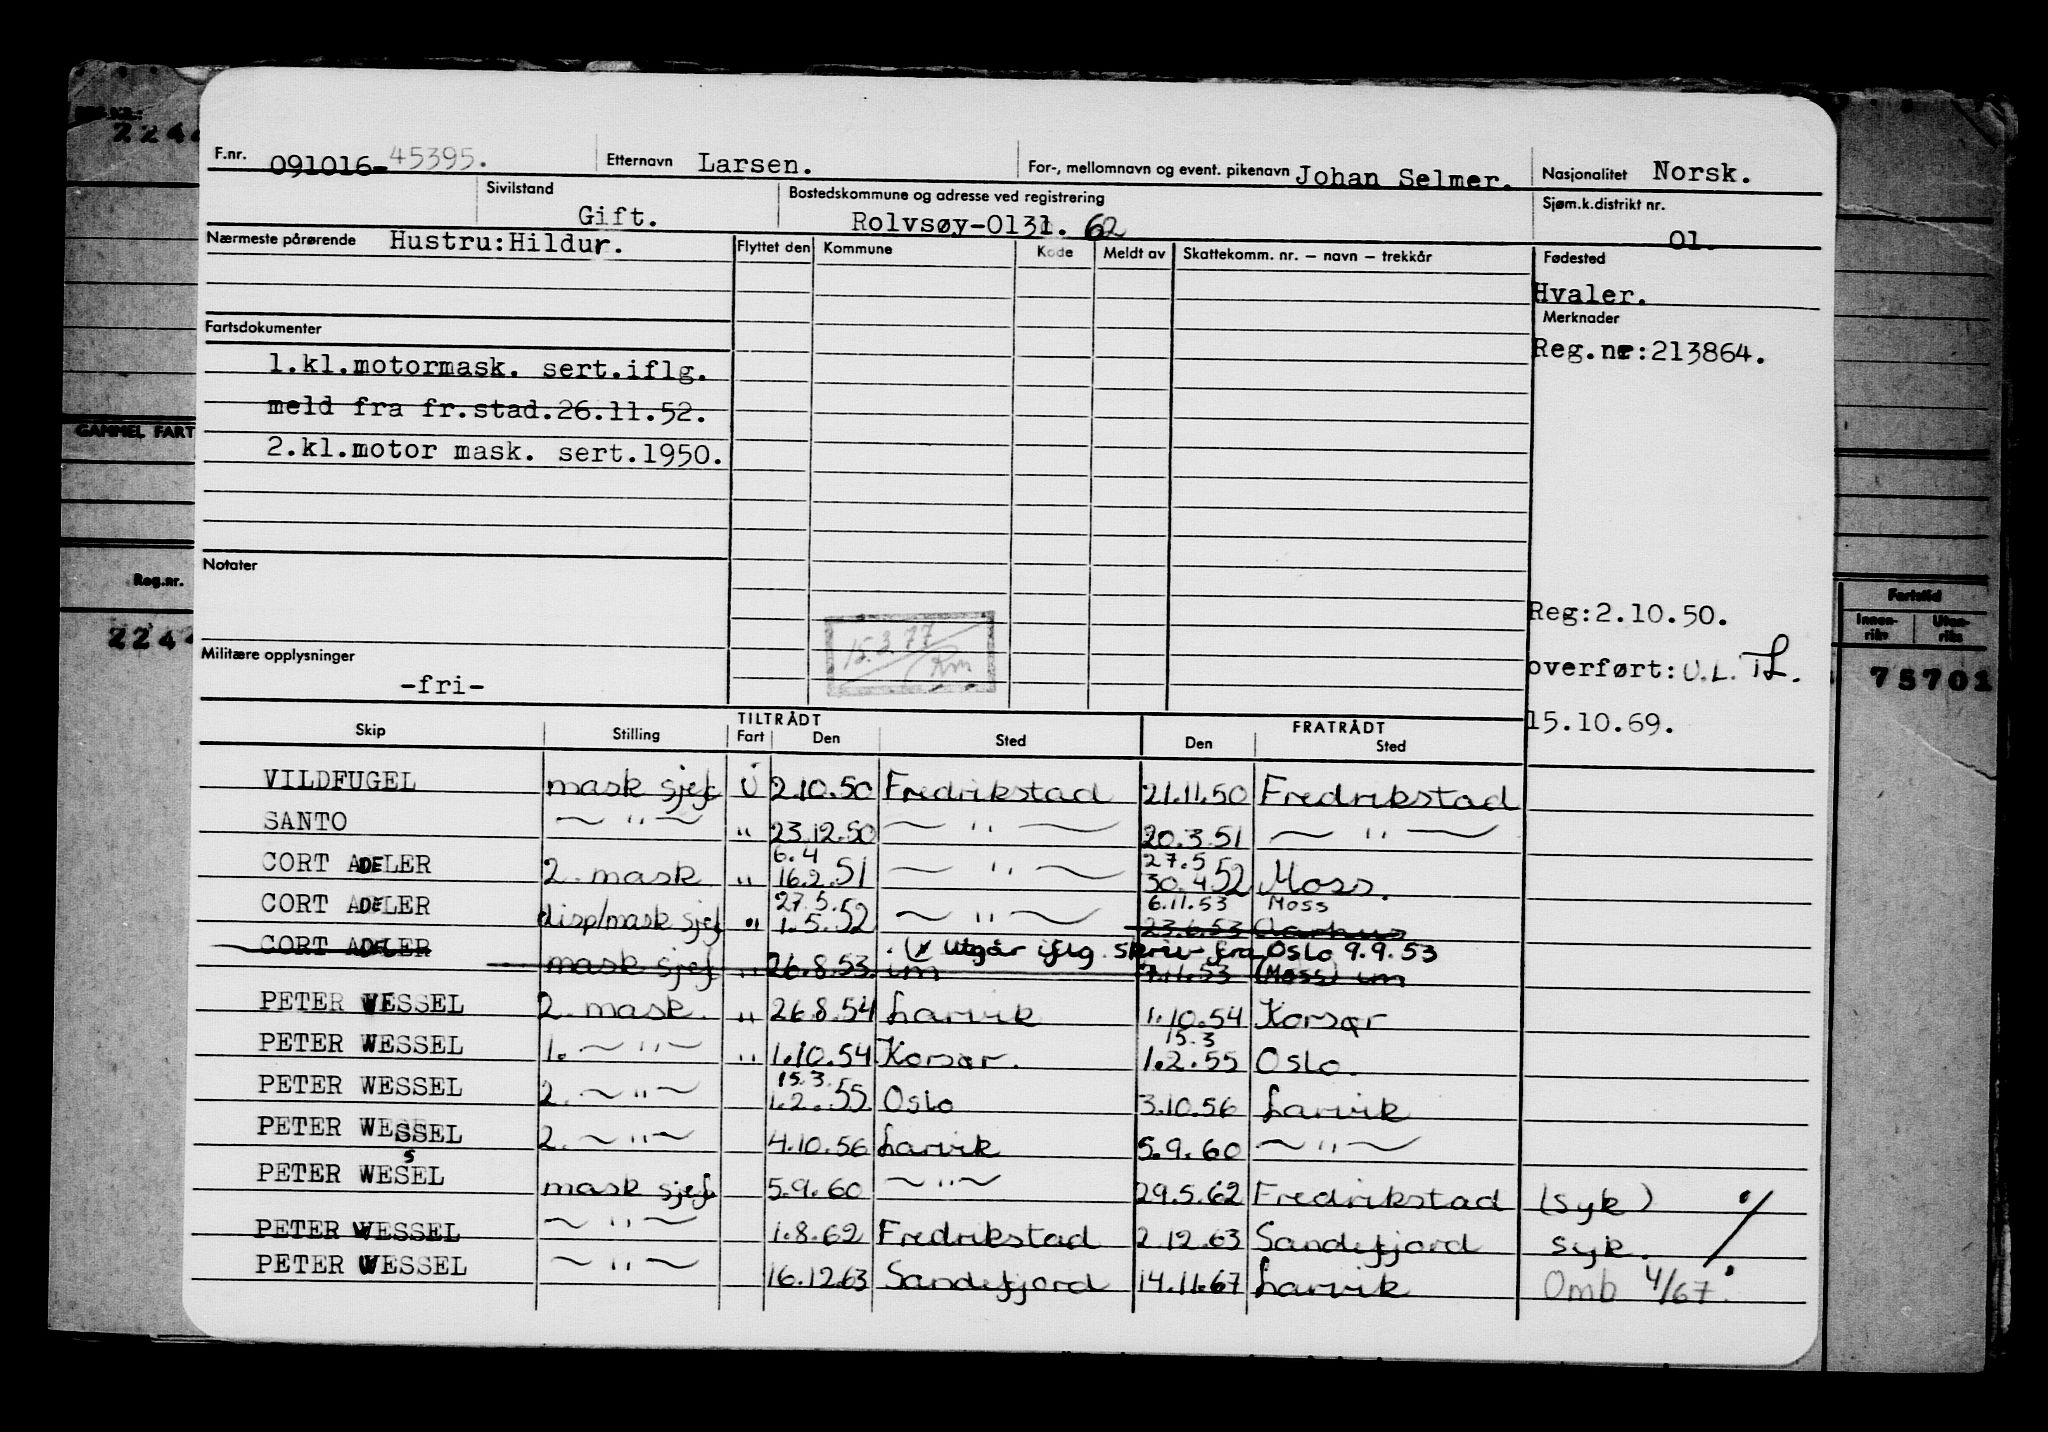 F.nr. 091016-45395. Etternavn Larsen. For-, mellomnavn og event. pikenavn Johan Selmer. Nasjonalitet Norsk.
Sivilstand Gift. Bostedskommune og adresse ved registrering Rolvsøy-0131. 62 Sjøm.k.distrikt nr. 01.
Nærmeste pårørende Hustru:Hildur. Flyttet den Kommune Kode Meldt av Skattekomm. nr. – navn – trekkår Fødested
Hvaler.
Merknader
Reg.nr:213864.
Fartsdokumenter
1.kl.motormask. sert.iflg.
meld fra fr.stad.26.11.52.
2.kl.motor mask. sert.1950.
Notater
15.3.77
Reg:2.10.50.
overført: U.L.
15.10.69.
Militære opplysninger
-fri-
TILTRÅDT FRATRÅDT
Skip Stilling Fart Den Sted Den Sted
VILDFUGEL mask sjef U 2.10.50 Fredrikstad 21.11.50 Fredrikstad
SANTO ~ " ~ " 23.12.50 ~ " ~ 20.3.51 ~ " ~
6.4 27.5
CORT ADELER 2. mask " 16.2.51 ~ " ~ 30.4.52 Moss.
27.5. 6.11.53 Moss
CORT ADELER disp/mask sjef " 1.5.52 ~ " ~ 23.6.53 Aarhus
(x utgår iflg. skriv fra Oslo 9.9.53
CORT ADELER mask sjef " 26.8.53. im 7.11.53 (Moss) im
PETER WESSEL 2. mask. " 26.8.54 Larvik 1.10.54 Korsør
15.3
PETER WESSEL 1. ~ " ~ " 1.10.54 Korsør. 1.2.55 Oslo.
15.3.
PETER WESSEL 2. ~ " ~ 1.2.55 Oslo 3.10.56 Larvik
PETER WESSEL 2. ~ " ~ 4.10.56 Larvik 5.9.60 ~ " ~
s
PETER WESEL mask sjef 5.9.60 ~ " ~ 29.5.62 Fredrikstad (syk)
PETER WESSEL ~ " ~ 1.8.62 Fredrikstad 2.12.63 Sandefjord syk.
PETER WESSEL ~ " ~ 16.12.63 Sandefjord 14.11.67 Larvik Omb 4/67.
GAMMEL FART
Reg.nr.
Fartstid
Innen-riks Uten-riks
75701